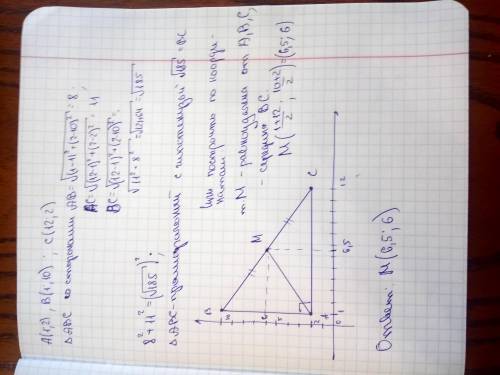 A(1,2), B(1,10); C(12;2)
△ABC со сторонами AB=√((1-1)²+(2-10)²) = 8
AC=√((12-1)²+(2-2)²) = 11
BC=√((12-1)²+(2-10)²) =
√(11²+8²) = √(121+64) = √185
8²+11² = (√185)²;
△ABC-прямоугольный с гипотенузой √185 = BC
построить по коорди-
натам
т. M - равноудалена от A,B,C,
- середина BC.
M((1+12)/2; (10+2)/2) = (6,5; 6)
B
10
M
6
5
C
2
A
0
1
6,5
12
Ответ: M(6,5; 6)